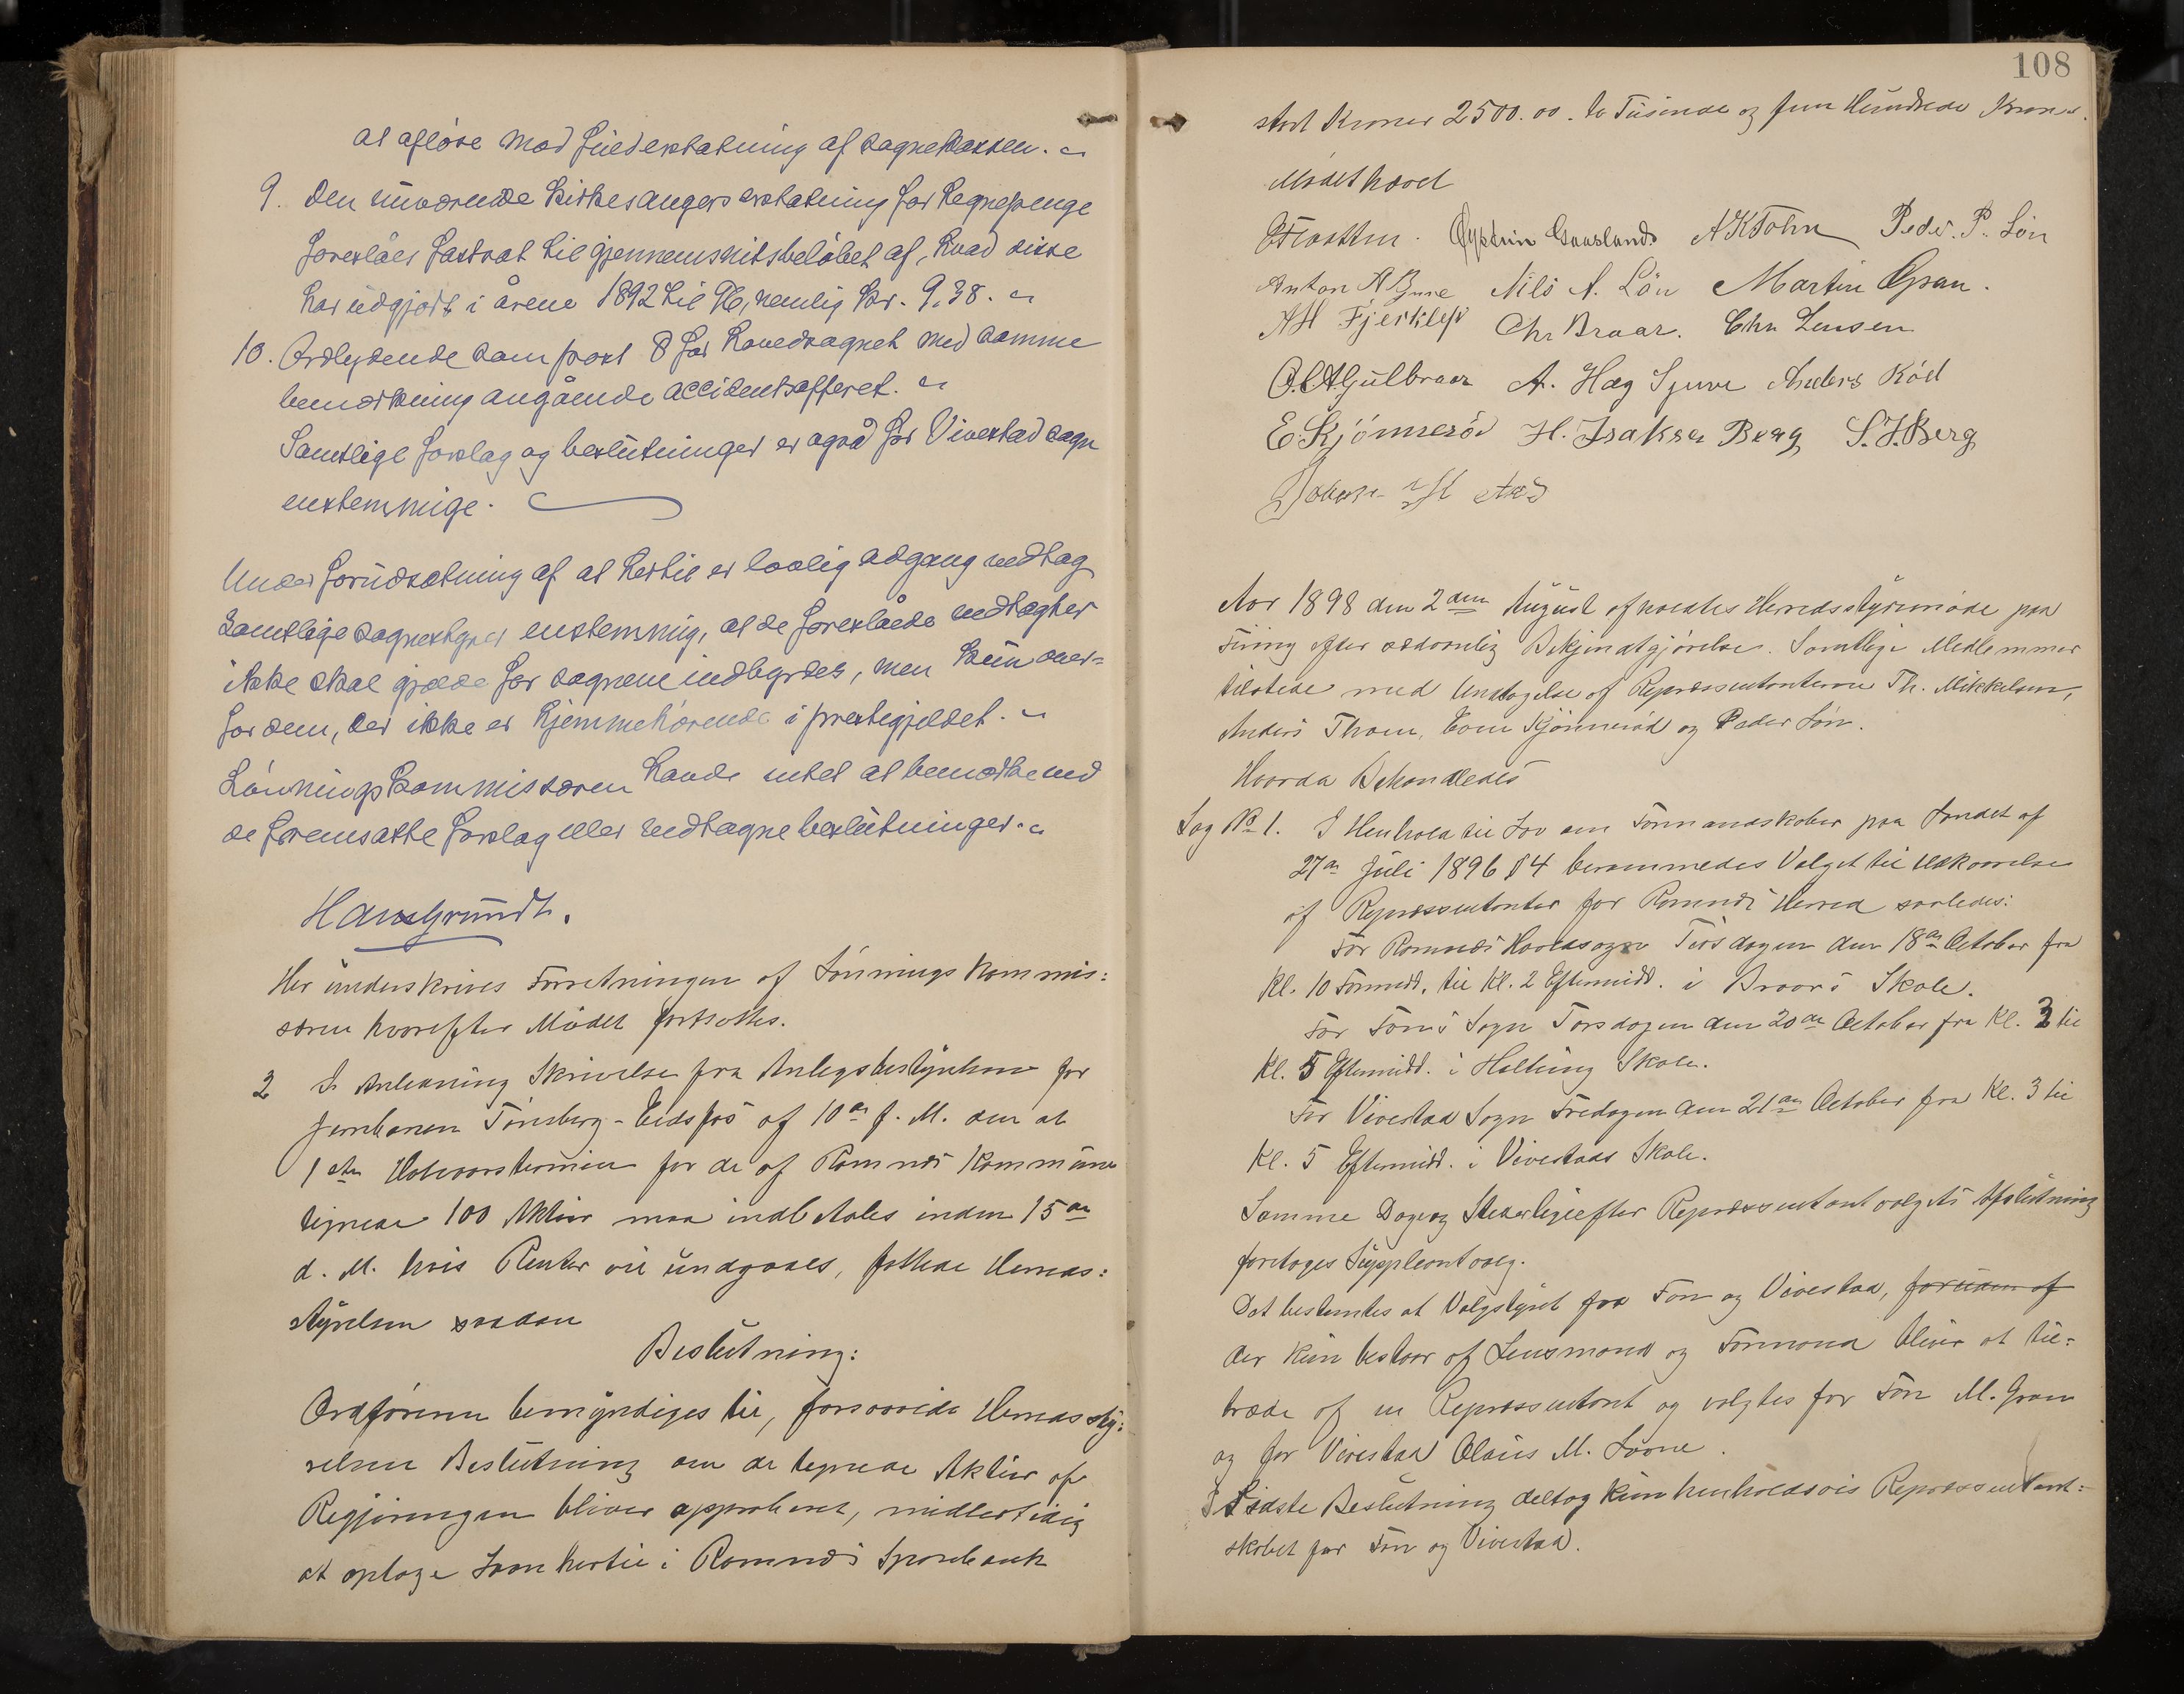 at afløse mod fuld erstatning af sognekassen.
9. Den nuværende kirkesangers erstatning for regnepenge
foreslåes fastsat til gjennemsnitsbeløbet af, hvad disse
har udgjort i årene 1892 til 96, nemlig kr. 9,38.
10. Ordlydende som post 8 for hovedsognet med samme
bemærkning angående accidentsofferet.
Samtlige forslag og beslutninger er også for Vivestad sogn
enstemmige.
Under forudsætning af at hertil er lovlig adgang vedtog
samtlige sognestyrer enstemmig, at de foreslåede vedtægter
ikke skal gjælde for sognene indbyrdes, men kun over-
for dem, der ikke er hjemmehørende i prestegjeldet.
Lønningskommissæren havde intet at bemærke ved
de fremsatte forslag eller vedtagne beslutninger.
Hans Grundt.
Her underskrives Forretningen af Lønnings Kommis:
særen hvorefter Mødet fortsattes.
2 I Anledning Skrivelse fra Anlægsbestyrelsen for
Jernbanen Tønsberg-Eidsfos af 10de f. M. om at
1ste Halvaarstermin for de af Ramnæs Kommune
tegnede 100 Aktier maa indbetales inden 15de
d. M. hvis Renter vil undgaaes, fattede Herreds:
styrelsen saadan
Beslutning:
Ordføreren bemyndiges til, forsaavidt Herredssty:
relsens Beslutning om de tegnede Aktier af
Regjeringen bliver approberet, midlertidig
at optage Laan hertil i Ramnæs Sparebank
108
stort Kroner 2500.00. to Tusinde og fem Hundrede Kroner.
Mødet hævet
Øystein Gaasland A K Tohn Peder. P. Lön
Anton A Nils A. Lön Martin Gran.
A H Fjerkleþ Chr Braar. Chr Lensen
O. A. Gulbraar A. Hag Sjuve Anders Röd
E. Kjönneröd H. Isaksen Berg S. J. Berg
Aar 1898 den 2den August afholdtes Herredsstyremøde paa
Firing efter sædvanlig Bekjendtgjørelse. Samtlige Medlemmer
tilstede med Undtagelse af Repræsentanterne Th. Mikkelsen,
Anders Thoen, Even Kjønnerød og Peder Løn.
Hvorda Behandledes
Sag No 1. I Henhold til Lov om Formandskaber paa Landet af
27de Juli 1896 § 4 berammedes Valget til Udkaarelse
af Repræsentanter for Ramnæs Herred saaledes:
For Ramnæs Hovedsogn Tirsdagen den 18de October fra
Kl. 10 Formidd. til Kl. 2 Eftermidd. i Braars Skole.
For Føns Sogn Torsdagen den 20de October fra Kl. 3 til
Kl. 5 Eftermidd. i Holting Skole.
For Vivestad Sogn Fredagen den 21de October fra Kl. 3 til
Kl. 5 Eftermidd. i Vivestads Skole.
Samme Dage og Steder ligeefter Repræsentantvalgets Afslutning
foretages Suppleantvalg.
Det bestemtes at Valgstyret for Fon og Vivestad, foruden af
der kun bestaar af Lensmand og Formand bliver at til-
træde af en Repræsentant og valgtes for Fon M. Gran
og for Vivestad Olaus M. Lovne.
I Sidste Beslutning deltog kun henholdsvis Repræsentant-
skabet for Fon og Vivestad.